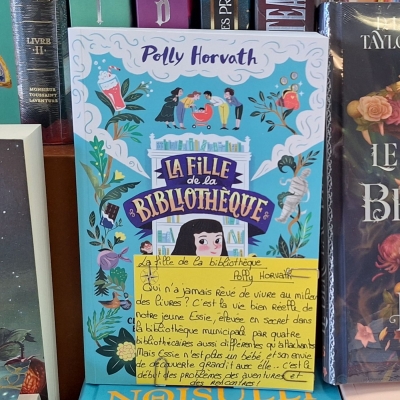 LIVRE
·II·
MONSIEUR
TOUSSAINT
LAVENTURE
Polly Horvath
LA FILLE
de la
BIBLIOTHÈQUE
La fille de la bibliothèque
Polly Horvath
Qui n'a jamais rêvé de vivre au milieu
des livres? C'est la vie bien réelle de
notre jeune Essie, élevée en secret dans
la bibliothèque municipale par quatre
bibliothécaires aussi différentes qu'attachantes
Mais Essie n'est plus un bébé, et son envie
de découverte grandit avec elle... c'est le
début des problèmes, des aventures et
des rencontres!
TAYLO
LE